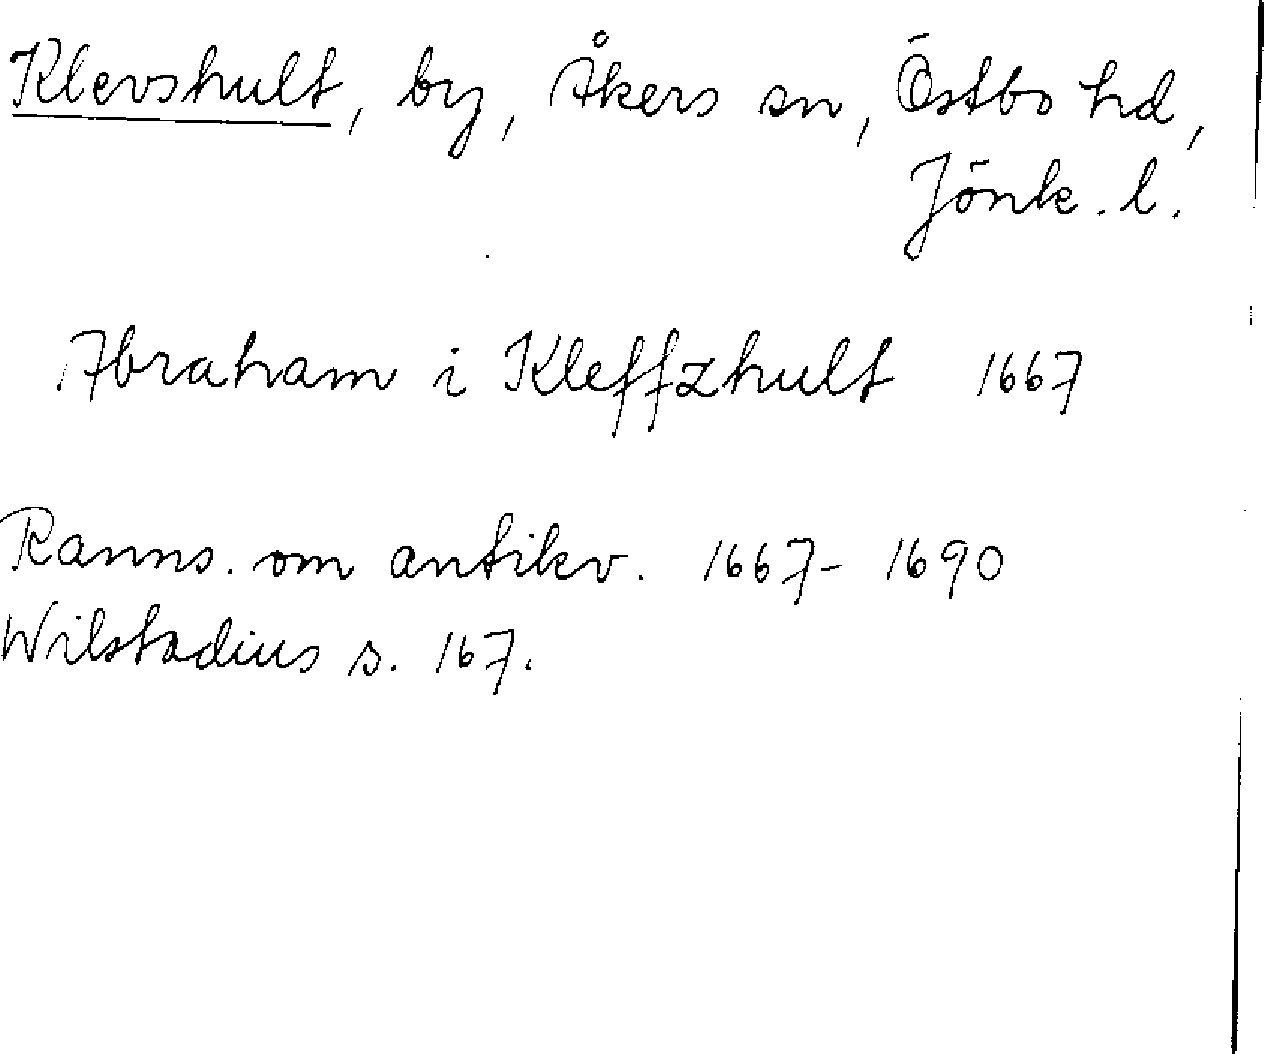 Klevshult, by, Åkers sn, Östbo hd,
Jönk. l.
Abraham i Kleffzhult 1667
Ranns. om antikv. 1667- 1690
Wilstadius s. 167.